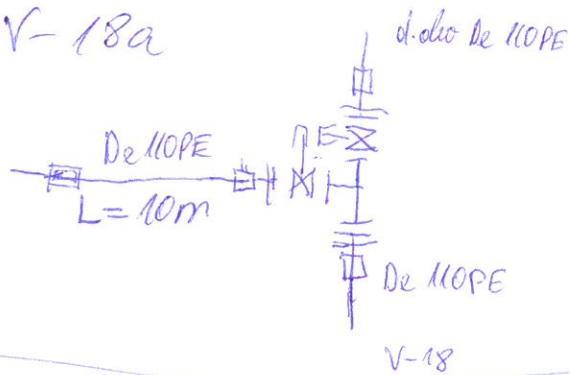 V-18a
De 110PE
De 110PE
L=10m
De 110PE
V-18